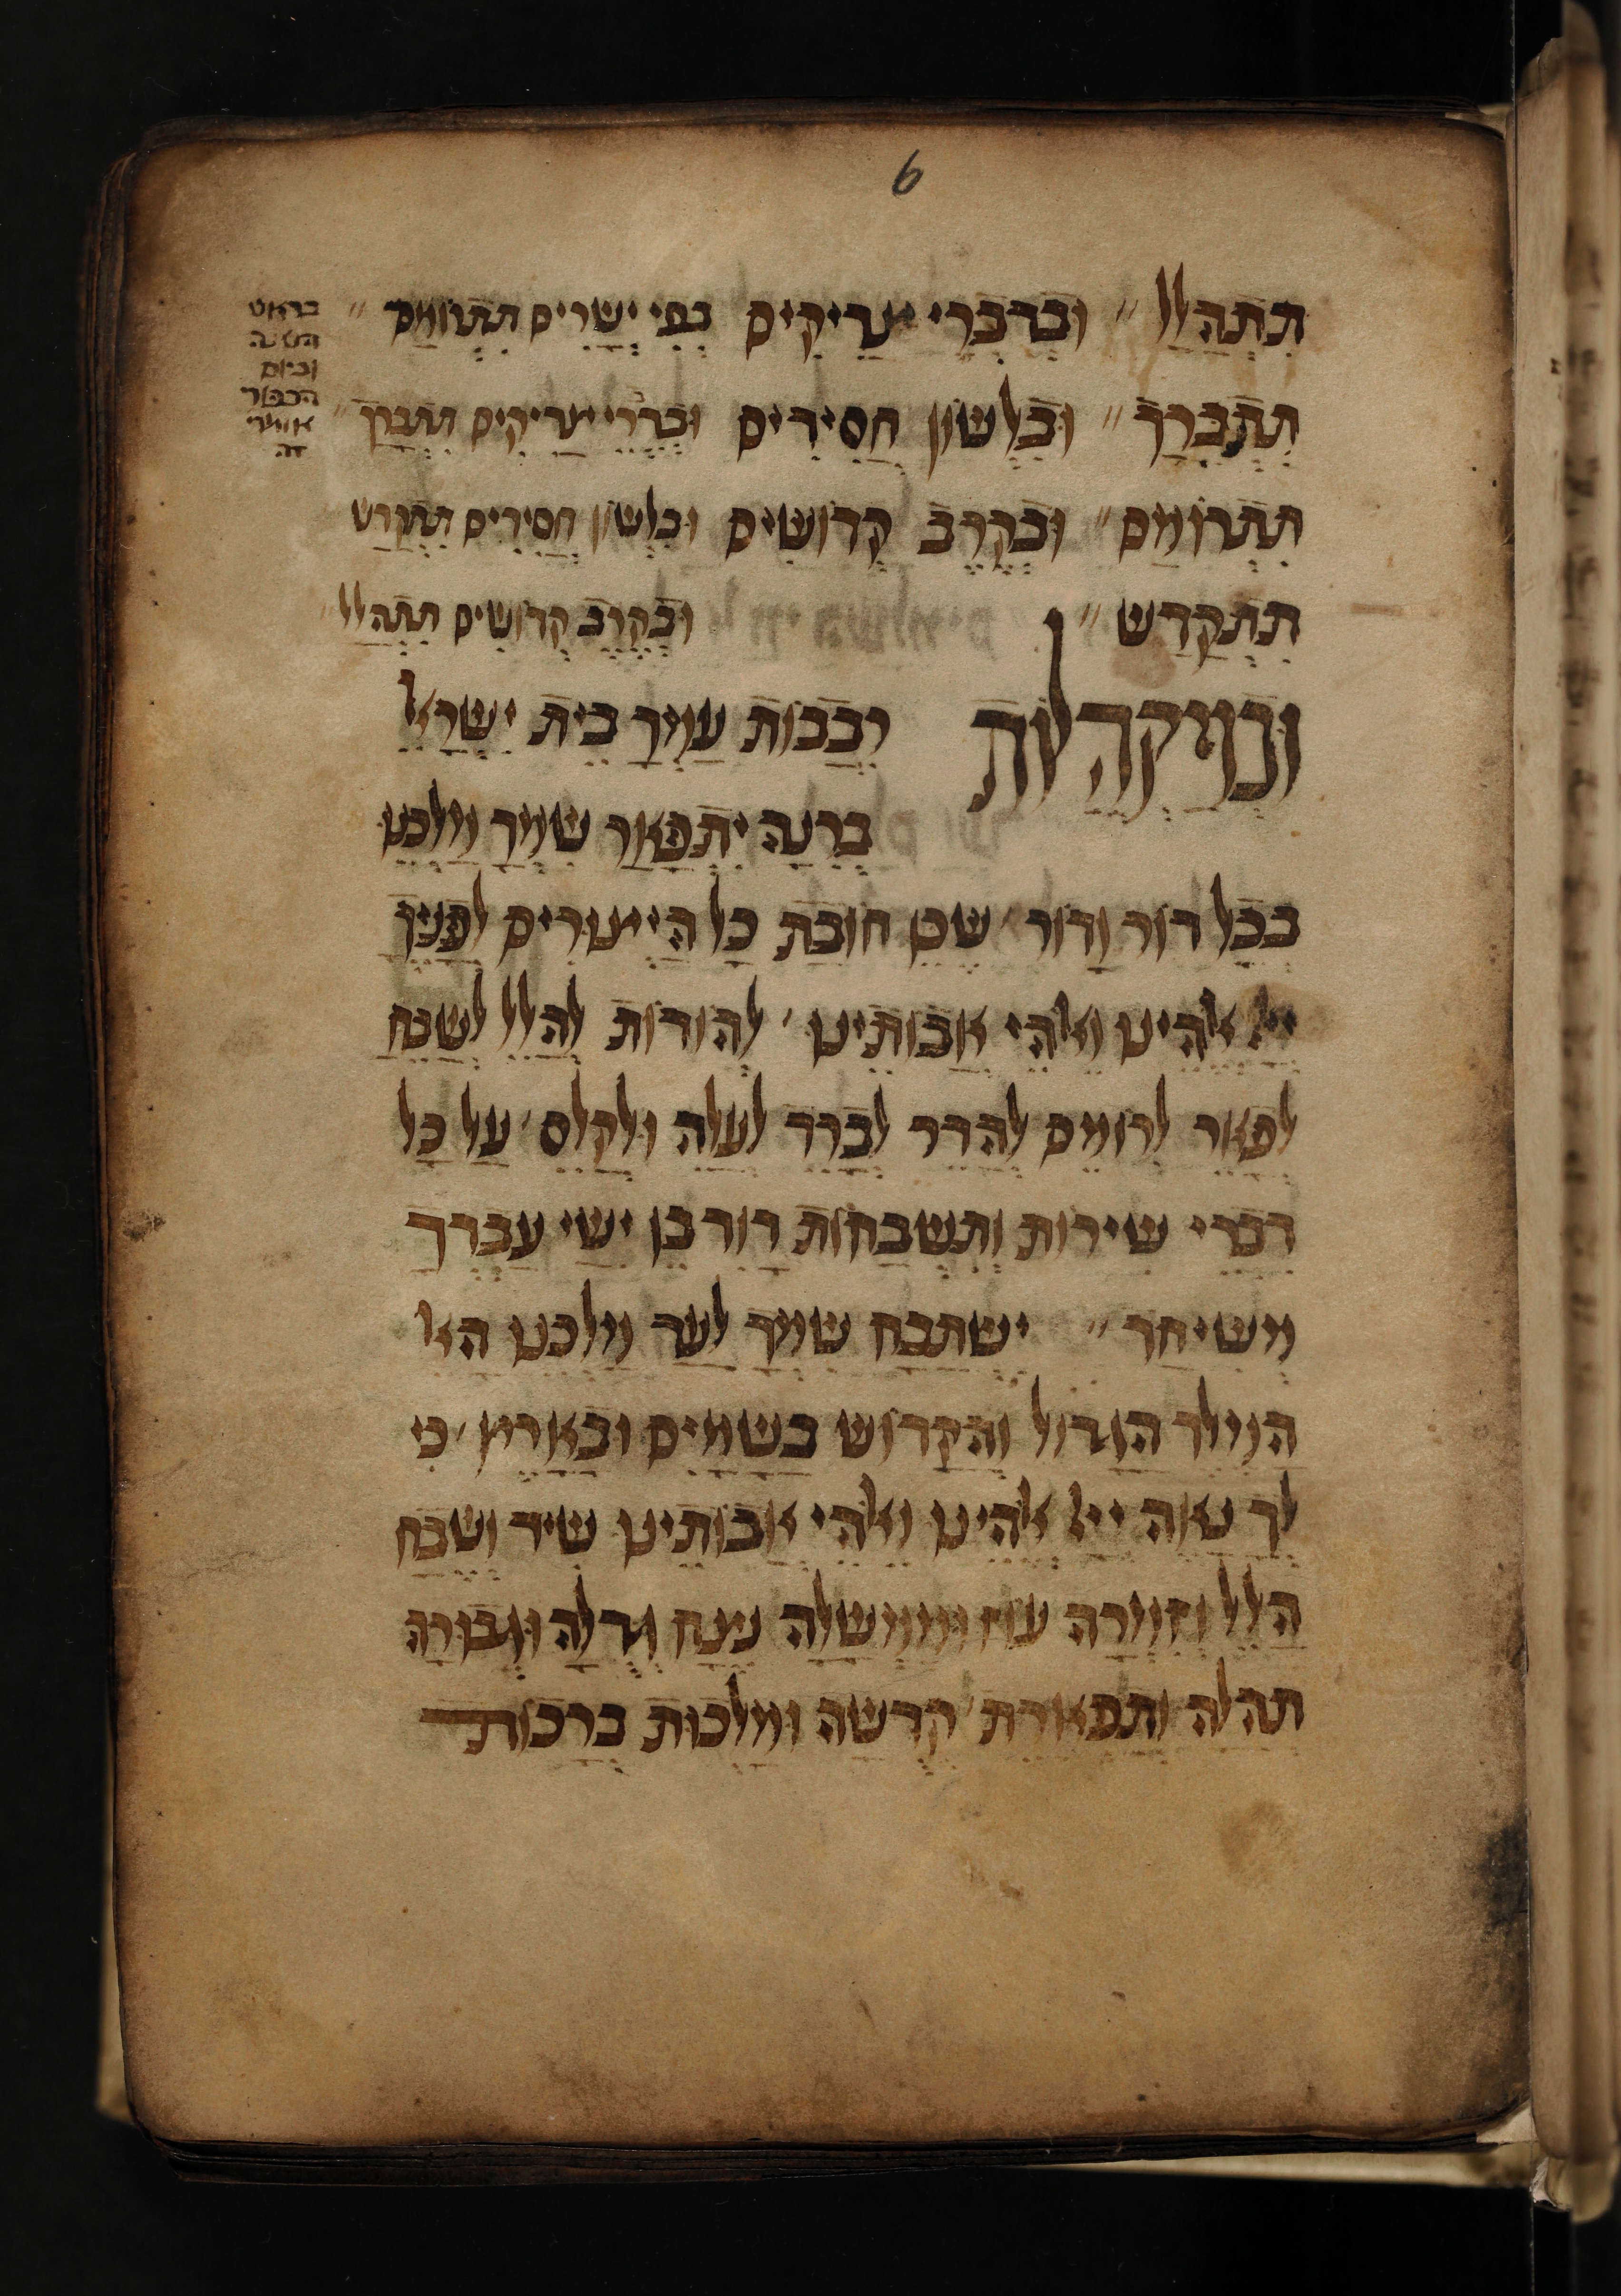 6
תִתְהַלל״ וּבְדִבְרֵי צַדִיקִים בְפִי יְשָרִים תִתְרוֹמַם״
תִתְבָרַךְ״ וּבִלְשוֹן חֲסִידִים וּבְדִבְרֵי צַדִיקִים תִתְבָרַךְ״
תִתְרוֹמַם״ וּבְקֶרֶב קְדוֹשִים וּבִלְשוֹן חֲסִידִים תִתְקַדָש
תִתְקַדַש״ וּבְקֶרֶב קְדוֹשִים תִתְהַלל״
וּבְמַקְהֲלוֹת רִבֲבוֹת עַמְךָ בֵית יִשְרָאל
בְרִנָה יִתְפָאַר שִמְךָ מַלְכֵנוּ
בְכָל דוֹר וָדוֹר׳ שֶכֵן חוֹבַת כָל הַיְצוּרִים לְפָנֶיךָ
ייָ אלֹהֵינוּ וֵאלֹהֵי אֲבוֹתֵינוּ׳ לְהוֹדוֹת לְהַלֵל לְשַבֵחַ
לְפָאֵר לְרוֹמֵם לְהַדֵר לְבָרֵךְ לְעַלֵה וּלְקַלֵס׳ עַל כָל
דִבְרֵי שִירוֹת וְתִשְבְחוֹת דָוִד בֶן יִשַי עַבְדְךָ
מְשִיחֶךָ״ יִשְתַבַח שִמְךָ לָעַד מַלְכֵנוּ הָאל
הַמֶלֶךְ הַגָדוֹל וְהַקָדוֹש בַשָמַיִם וּבָאָרֶץ׳ כִי
לְךָ נָאֶה ייָ אלֹהֵינוּ וֵאלֹהֵי אֲבוֹתֵינוּ שִיר וּשְבָחָ
הַלֵל וְזִמְרָה עוֹז וּמֶמְשָלָה נֶצַח גְדֻלָה וּגְבוּרָה
תְהִלָה וְתִפְאֶרֶת׳ קְדֻשָה וּמַלְכוּת בְרָכוֹת
בראש
השנה
וביום
הכפור
אומ׳
זה